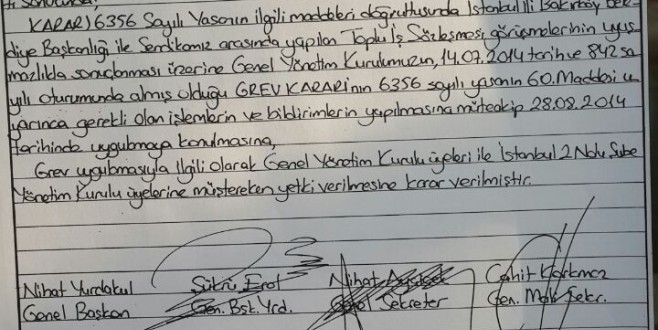 KARAR) 6356 Sayılı Yasanın ilgili maddeleri doğrultusunda İstanbul İli Bakırköy Bele
diye Başkanlığı ile Sendikamız arasında yapılan Toplu İş Sözleşmesi görüşmelerinin uyuş
mazlıkla sonuçlanması üzerine Genel Yönetim Kurulumuzun, 14.07.2014 tarih ve 842 sa
yılı oturumunda almış olduğu GREV KARARI'nın 6356 sayılı yasanın 60. Maddesi u
yarınca gerekli olan işlemlerin ve bildirimlerin yapılmasına müteakip 28.08.2014
tarihinde uygulamaya konulmasına,
Grev uygulamasıyla ilgili olarak Genel Yönetim Kurulu üyeleri ile İstanbul 2 Nolu Şube
Yönetim Kurulu üyelerine müştereken yetki verilmesine karar verilmiştir.
Nihat Yurdakul Şükrü Erol Nihat Cahit Korkmaz
Genel Başkan Gen. Bşk. Yrd. Genel Sekreter Gen. Mali Sekr.